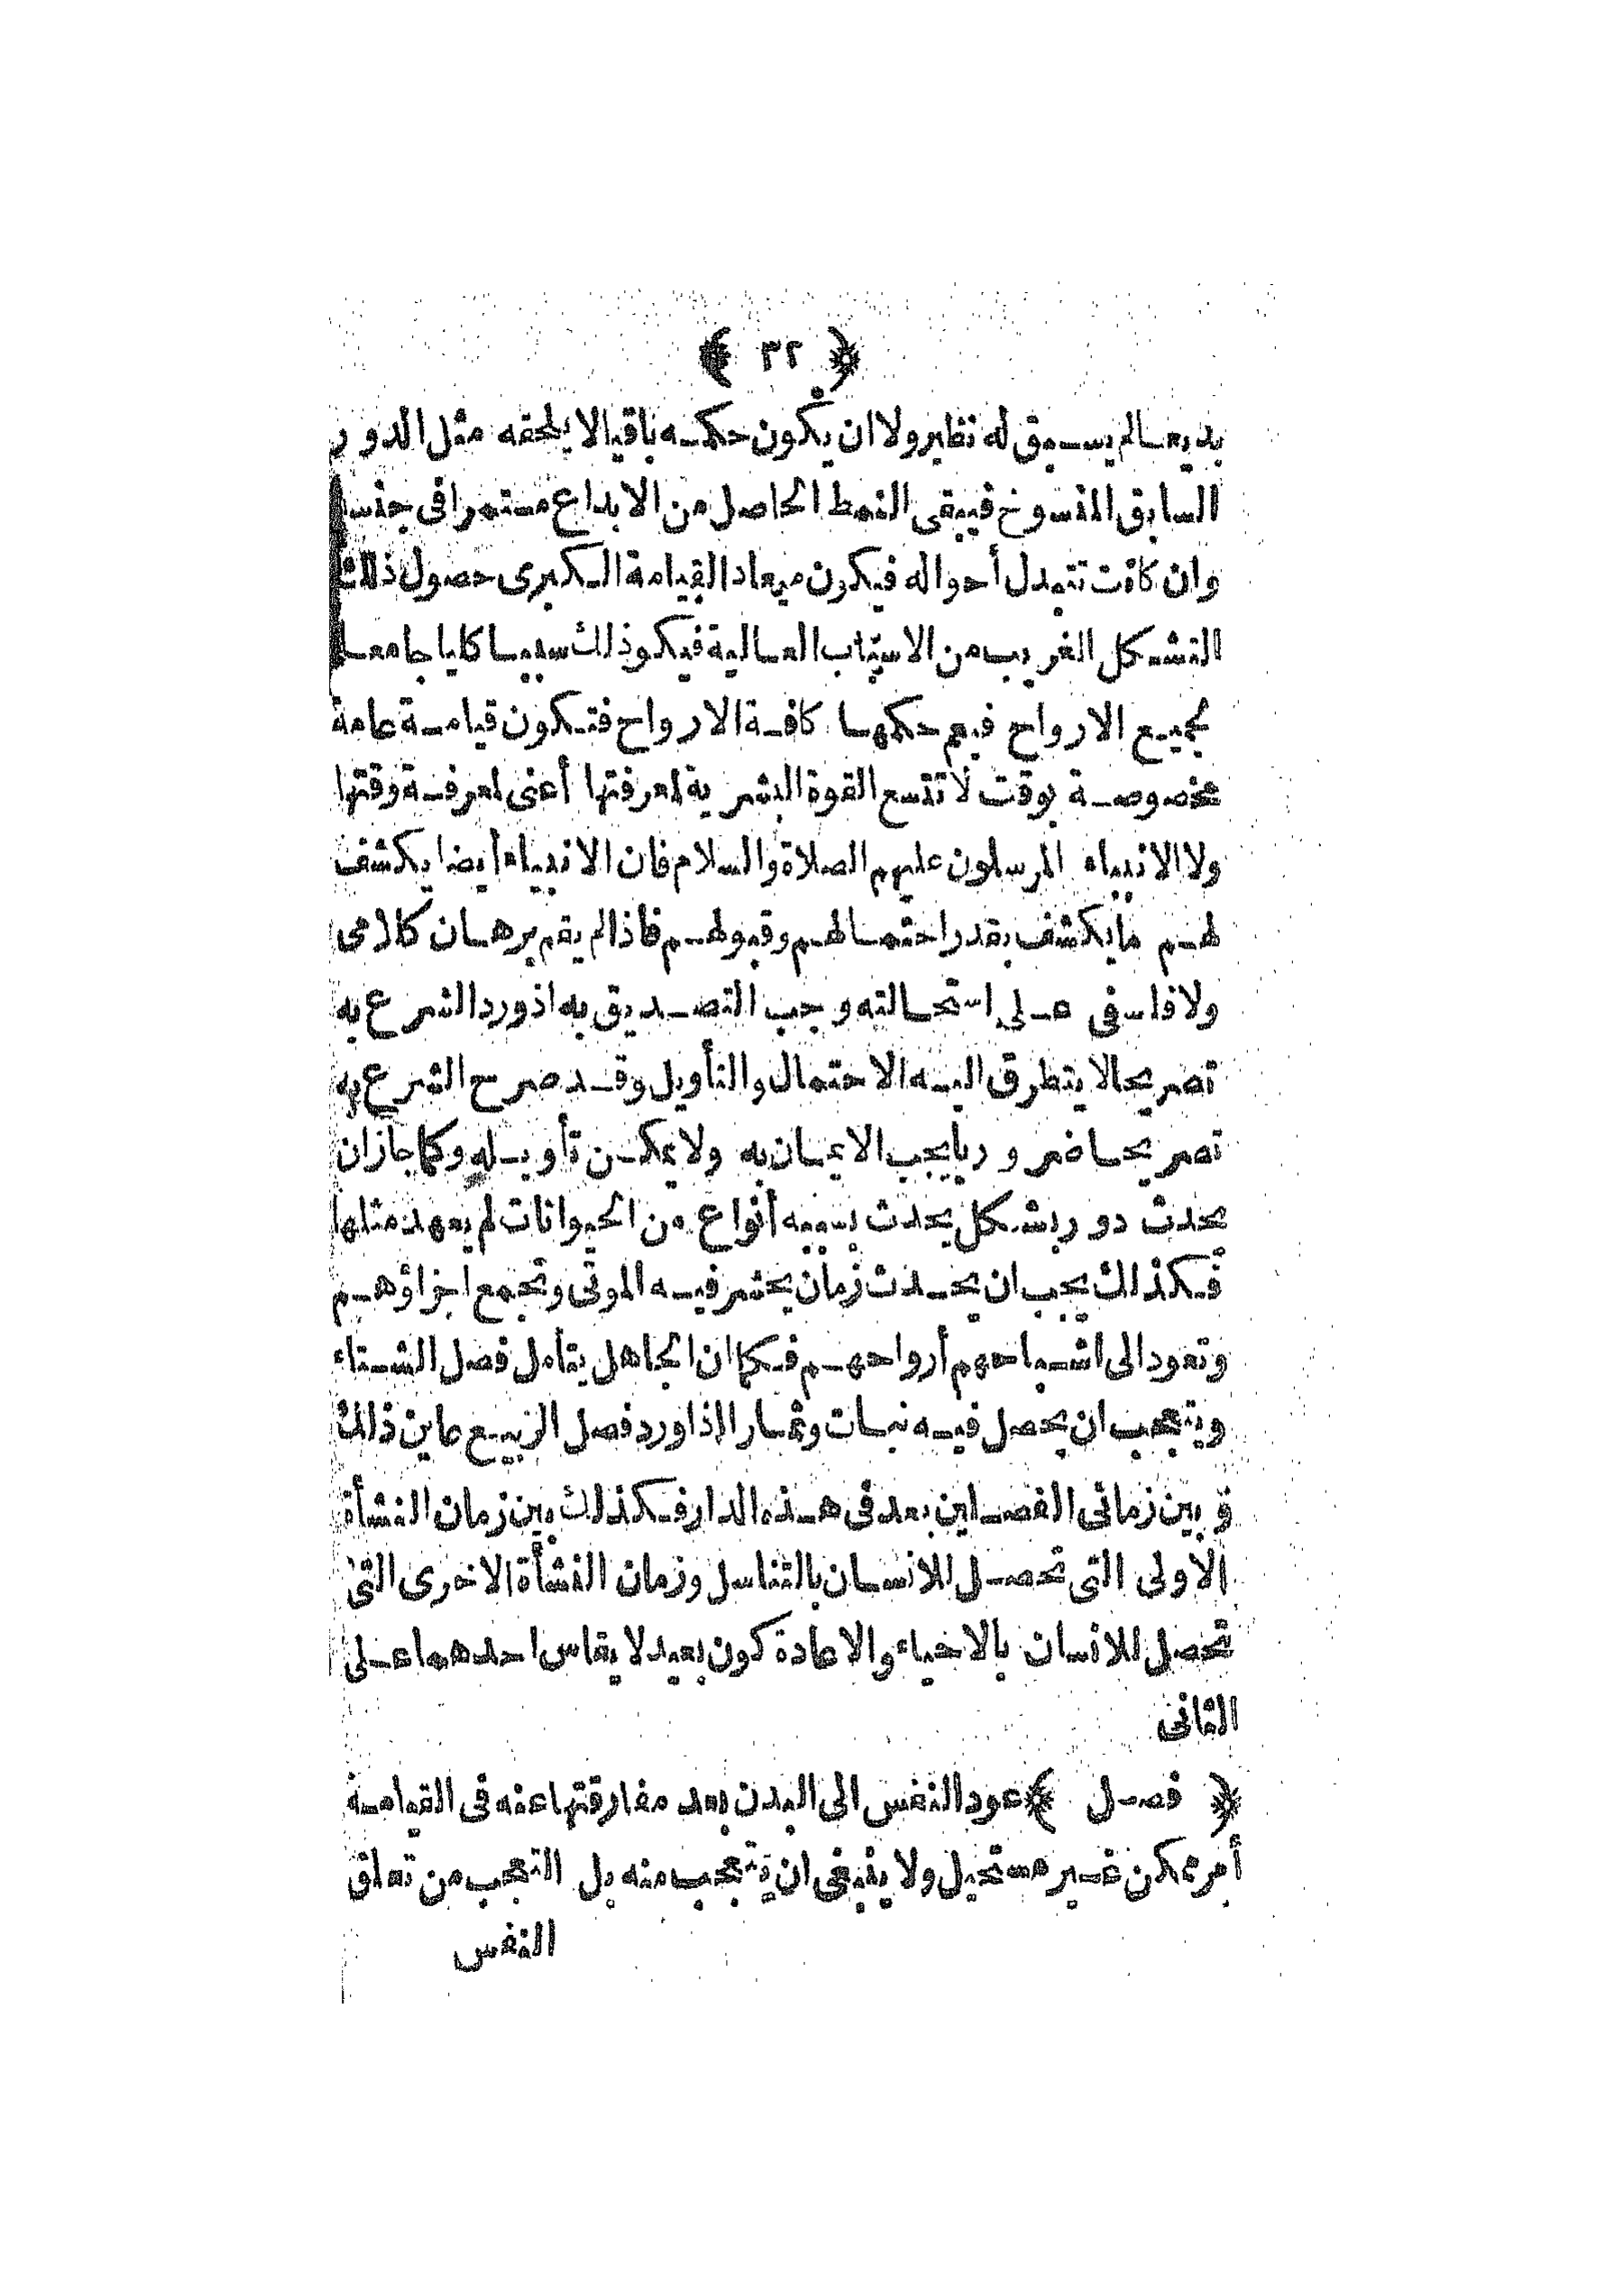 ﴿ ٣٢ ﴾
بديعا لم يسبق له نظير ولا ان يكون حكمه باقيا لا يلحقه مثل الدور
السابق المنسوخ فيبقى النمط الحاصل من الابداع مستمرا فى جنسه
وان كانت تتبدل أحواله فيكون ميعاد القيامة الكبرى حصول ذلك
التشكل الغريب من الاسباب العالية فيكوذلك سببا كليا جامعا
لجميع الارواح فيعم حكمها كافة الارواح فتكون قيامة عامة
مخصوصة بوقت لا تتسع القوة البشرية لمعرفتها أعنى لمعرفة وقتها
ولا الانبياء المرسلون عليهم الصلاة والسلام فان الانبياء أيضا يكشف
لهم ما يكشف بقدر احتمالهم وقبولهم فاذا لم يقم برهان كلامى
ولا فلسفى على استحالته وجب التصديق به اذ ورد الشرع به
تصريحا لا يتطرق اليه الاحتمال والتأويل وقد صرح الشرع به
تصريحا ضروريا يجب الايمان به ولا يمكن تأويله وكما جاز ان
يحدث دور بشكل يحدث بسببه أنواع من الحيوانات لم يعهد مثلها
فكذلك يجب ان يحدث زمان يحشر فيه الموتى وتجمع اجزاؤهم
وتعود الى اشباحهم أرواحهم فكما ان الجاهل يتأمل فصل الشتاء
ويتعجب ان يحصل فيه نبات وثمار الا ذا ورد فصل الربيع عاين ذلك
وبين زمانى الفصلين بعد فى هذه الدار فكذلك بين زمان النشأة
الاولى التى تحصل للانسان بالتناسل وزمان النشأة الاخرى التى
تحصل للانسان بالاحياء والاعادة كون بعيد لا يقاس احدهما على
الثانى
﴿ فصل ﴾ عود النفس الى البدن بعد مفارقتها عنه فى القيامة
أمر ممكن غير مستحيل ولا ينبغى ان يتعجب منه بل التعجب من تعلق
النفس